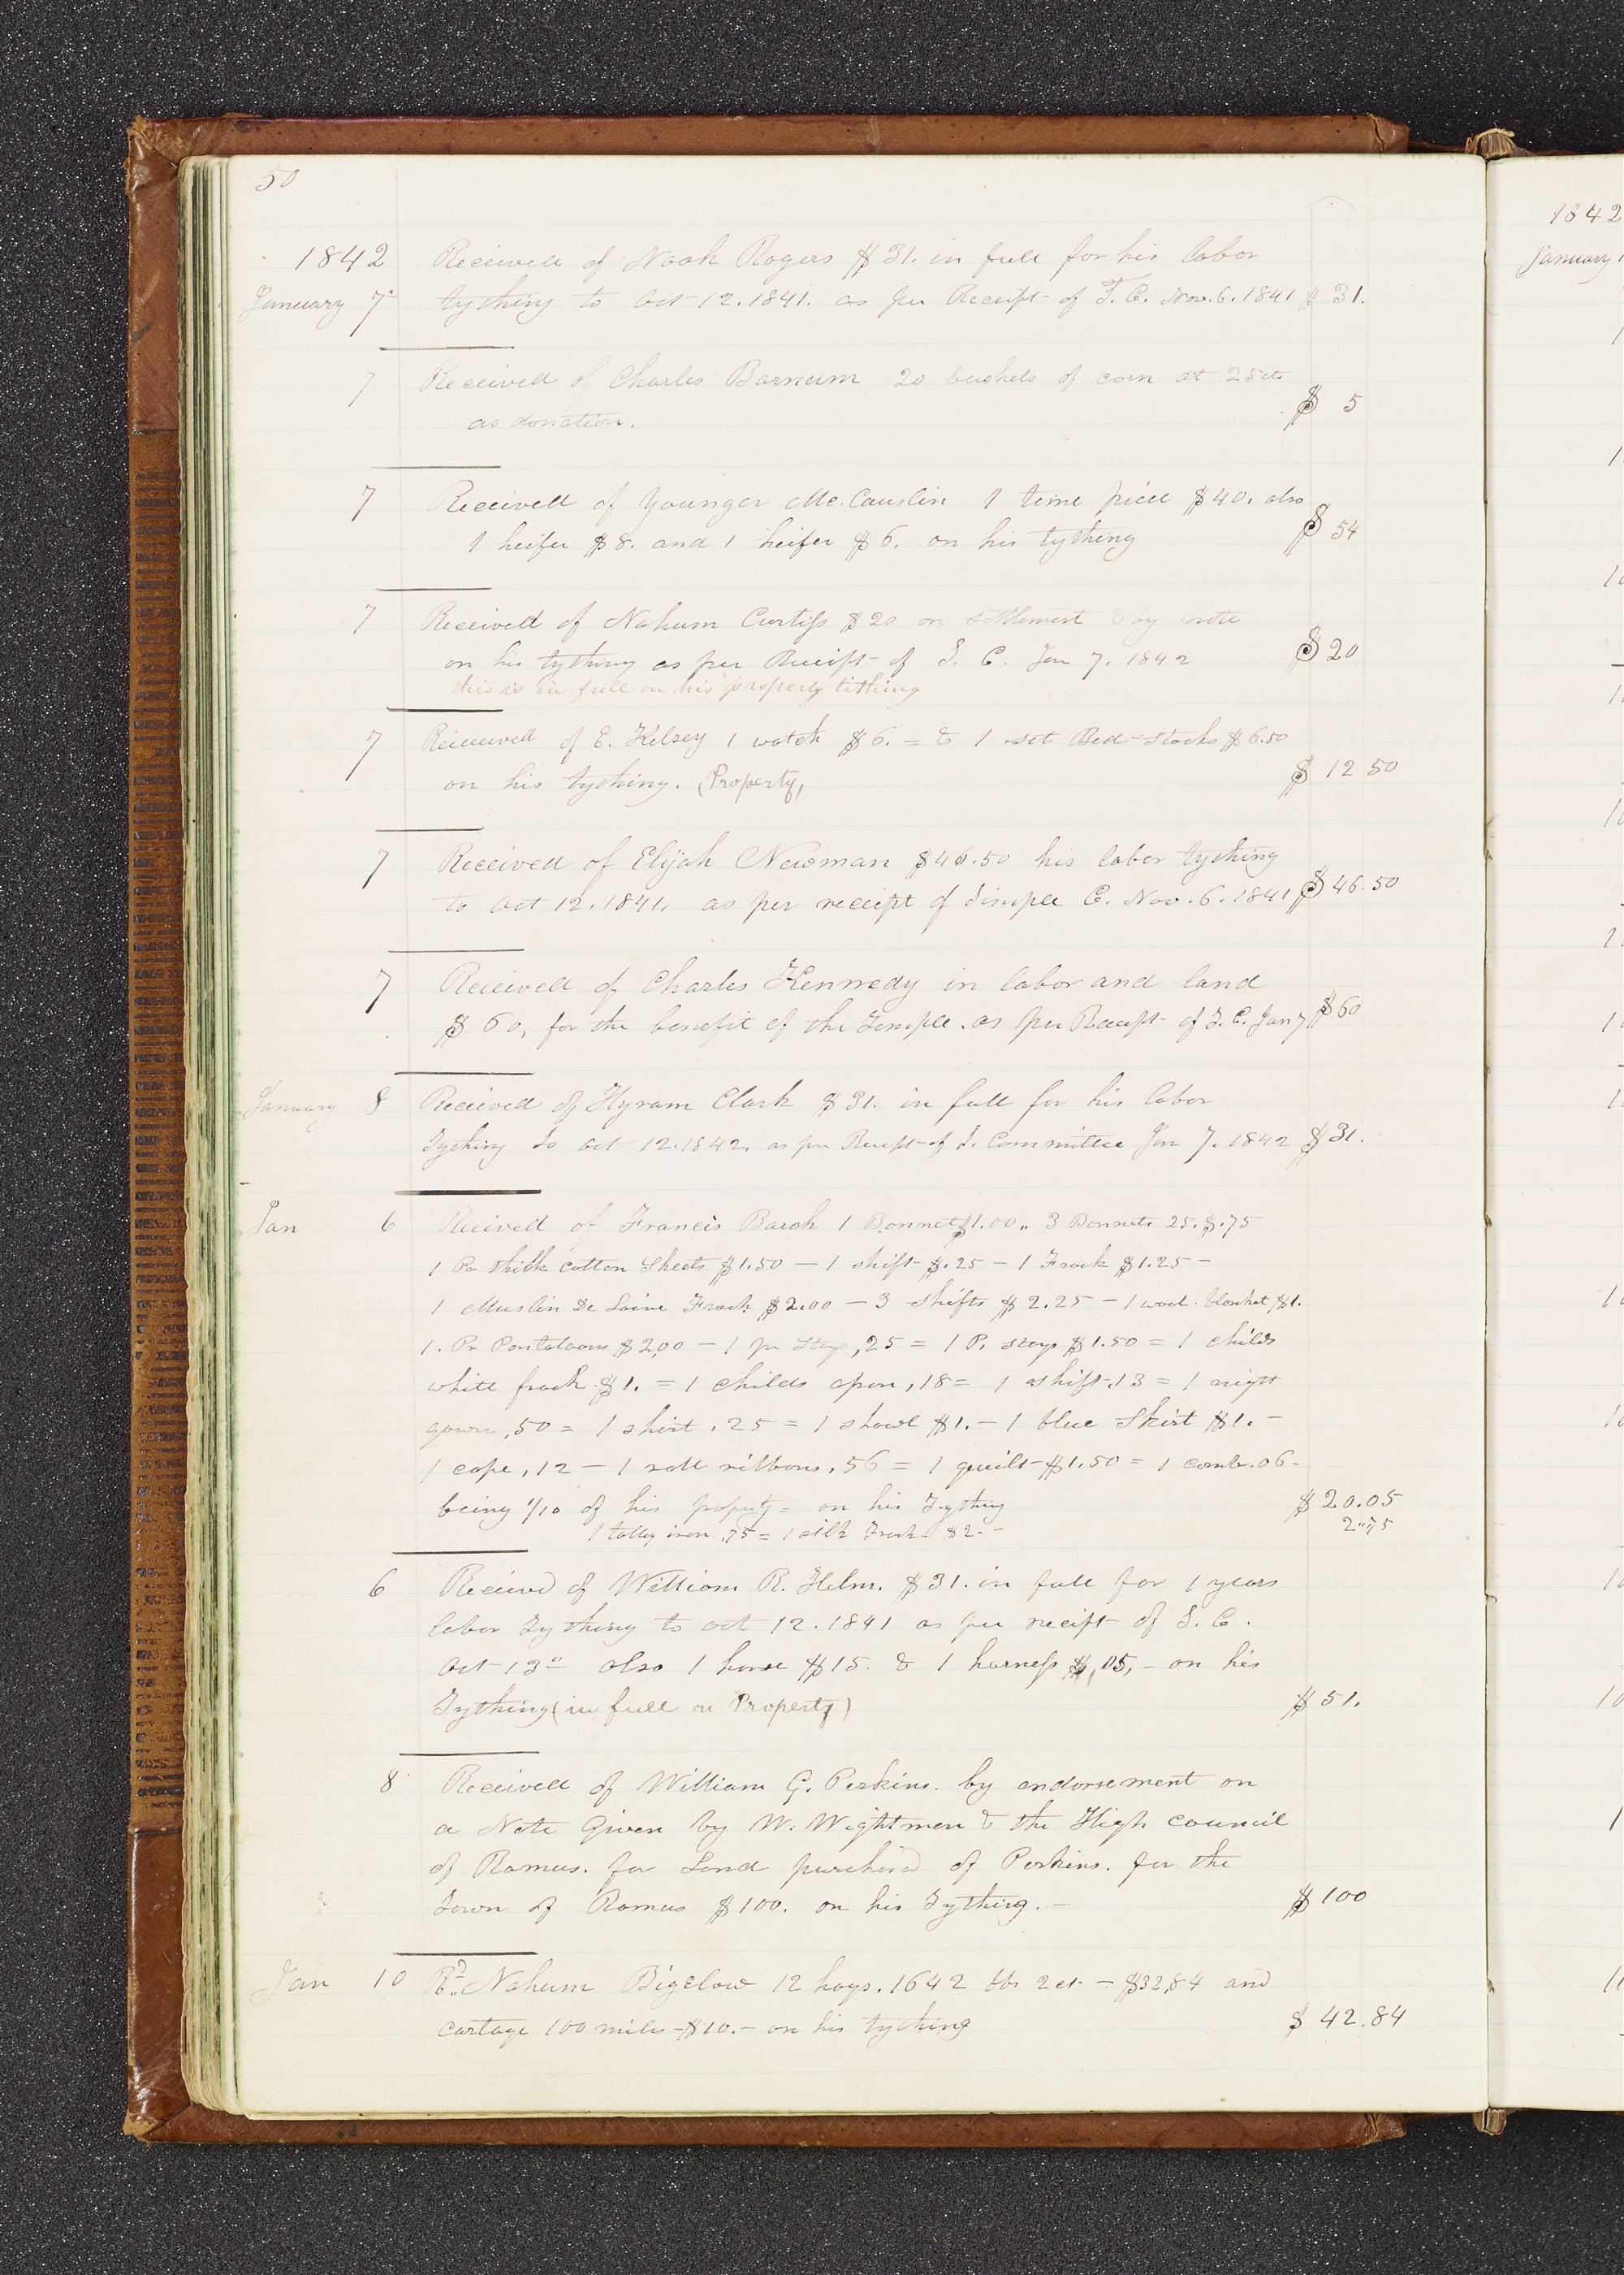 50
1842 Received of Noah Rogers $31. in full for his labor
January 7th tything to Oct 12. 1841. as per Receipt of T. C. Nov. 6. 1841 $ 31.
7 Received of Charles Barnum 20 bushels of corn at 25cts
as donation. $ 5
7 Received of Younger Mc.Causlin 1 time piece $40. also
1 heifer $8. and 1 heifer $6. on his tything $ 54
7 Received of Nahum Curtiss $20 on settlement & by note
on his tything as per Receipt of T. C. Jan 7. 1842 $ 20
this is in full on his property tithing
7 Received of E. Kelsey 1 watch $6. = & 1 set Bed-stocks $6.50
on his tything. (Property) $ 12 50
7 Received of Elijah Newman $46.50 his labor tything
to Oct 12. 1841. as per receipt of Temple C. Nov. 6. 1841 $ 46.50
7 Received of Charles Kennedy in labor and land
$ 60, for the benefit of the Temple. as per Receipt of T. C. Jan 7 $ 60
January 8 Received of Hyram Clark $31. in full for his labor
Tything to Oct 12. 1842. as per Receipt of T. Committee Jan 7. 1842 $ 31.
Jan 6 Recived of Francis 1 Bonnet $1.00 „ 3 Bonnets 25. $.75
1 Pr thick cotton Sheets $1.50 — 1 shift $.25 — 1 Frock $1.25 —
1 Muslin De Laine Frock $2.00 — 3 shifts $2.25 — 1 wool. blanket $1.
1. Pr Pantaloons $2,00 — 1 pr Stays ,25 = 1 Pr stays $1.50 = 1 childs
white frock $1. = 1 childs apron ,18 = 1 shift .13 = 1 night
gown ,50 = 1 shirt .25 = 1 shawl $1. — 1 blue Skirt $1. —
1 cape ,12 — 1 roll ribbons ,56 = 1 quilt $1.50 = 1 comb .06 —
being 1/10 of his property = on his Tything $ 20.05
1 iron ,75 = 1 silk Frock $2 — 2„75
6 Recieved of William R. Helm. $31. in full for 1 years
labor Tything to Oct 12. 1841 as per receipt of T. C.
Oct 13th also 1 horse $15. & 1 harness $,05, — on his
Tything (in full on Property) $ 51.
8 Received of William G. Perkins. by endorsement on
a Note Given by W. Wightman & the High Council
of Ramus. for Land purchased of Perkins. for the
Town of Ramus $100. on his Tything. — $ 100
Jan 10 Rd Nahum Bigelow 12 hogs. 1642 lbs 2ct — $32,84 and
cartage 100 miles — $10. — on his tything $ 42.84
1842
January